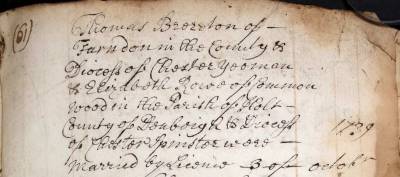 (6)
Thomas Brereton of
Farndon in the County &
Diocess of Chester Yeoman
& Elizabeth Rowe of Common
wood in the Parish of Holt
County of Denbeigh & Diocess
of Chester Spinster were 1739
Married by Licence 3 of octobr